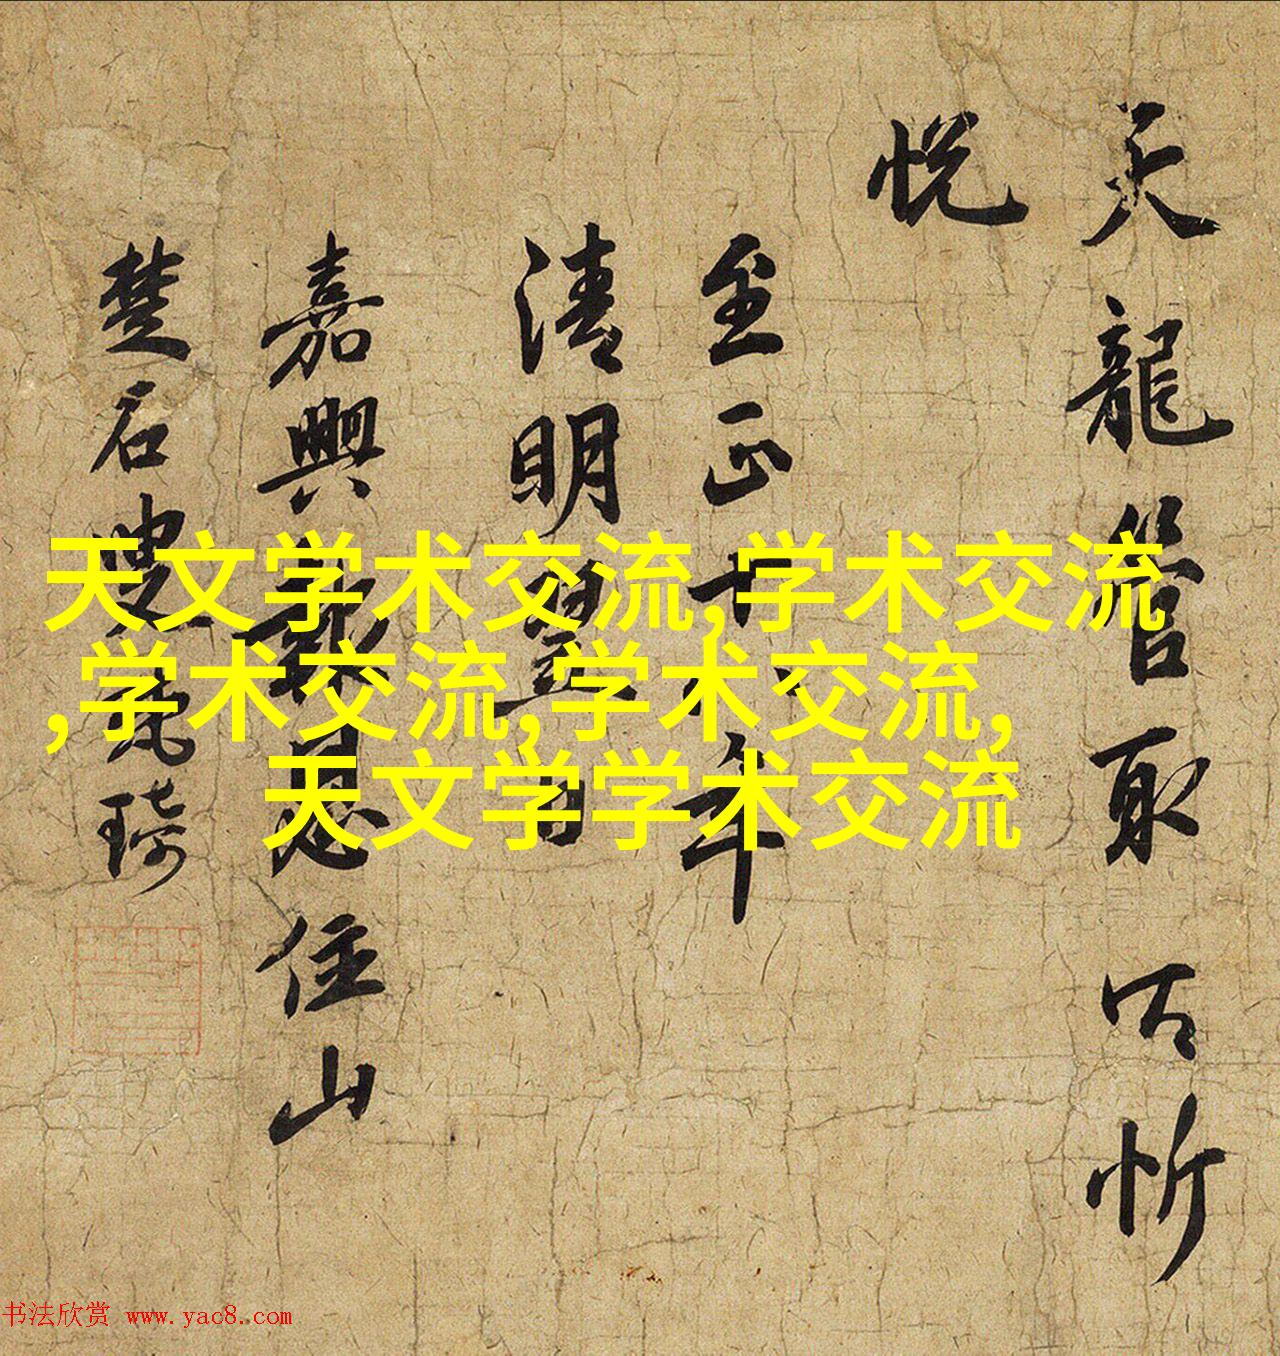 天龍管取以忻
悅
至正年
清明望日
嘉興報恩住山
楚石叟梵琦
天文学术交流,学术交流
,学术交流,学术交流,
天文学学术交流
书法欣赏 www.yac8.com